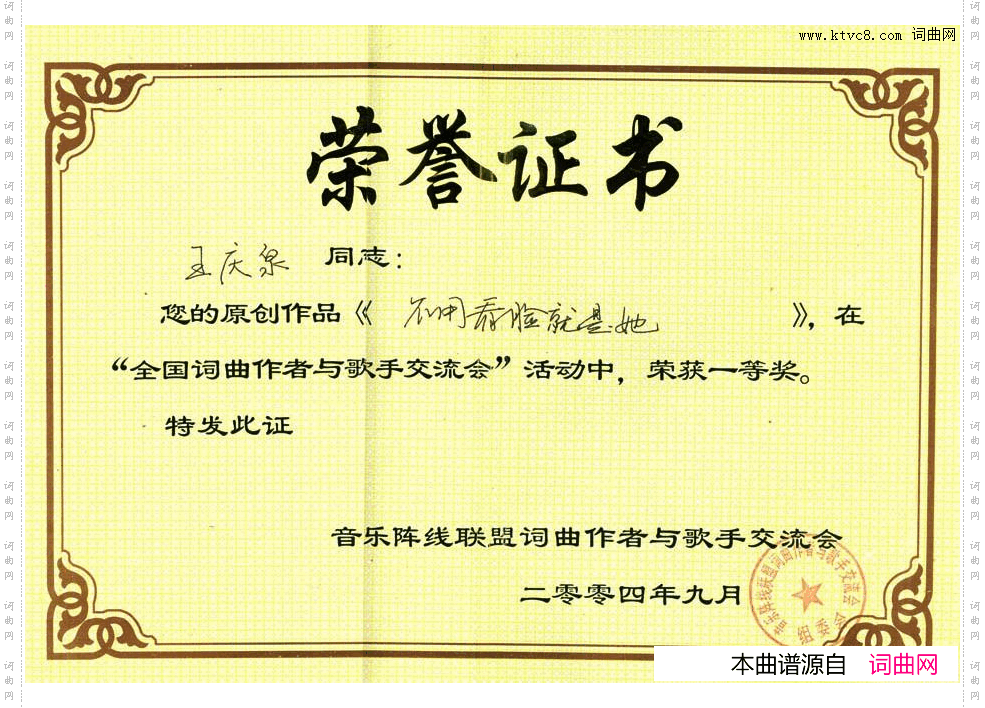 www.ktvc8.com 词曲网
荣誉证书
王庆泉 同志：
您的原创作品《 不用看脸就是她 》，在
“全国词曲作者与歌手交流会”活动中，荣获一等奖。
特发此证
音乐阵线联盟词曲作者与歌手交流会
二零零四年九月
音乐阵线联盟词曲作者与歌手交流会
组委会
本曲谱源自 词曲网